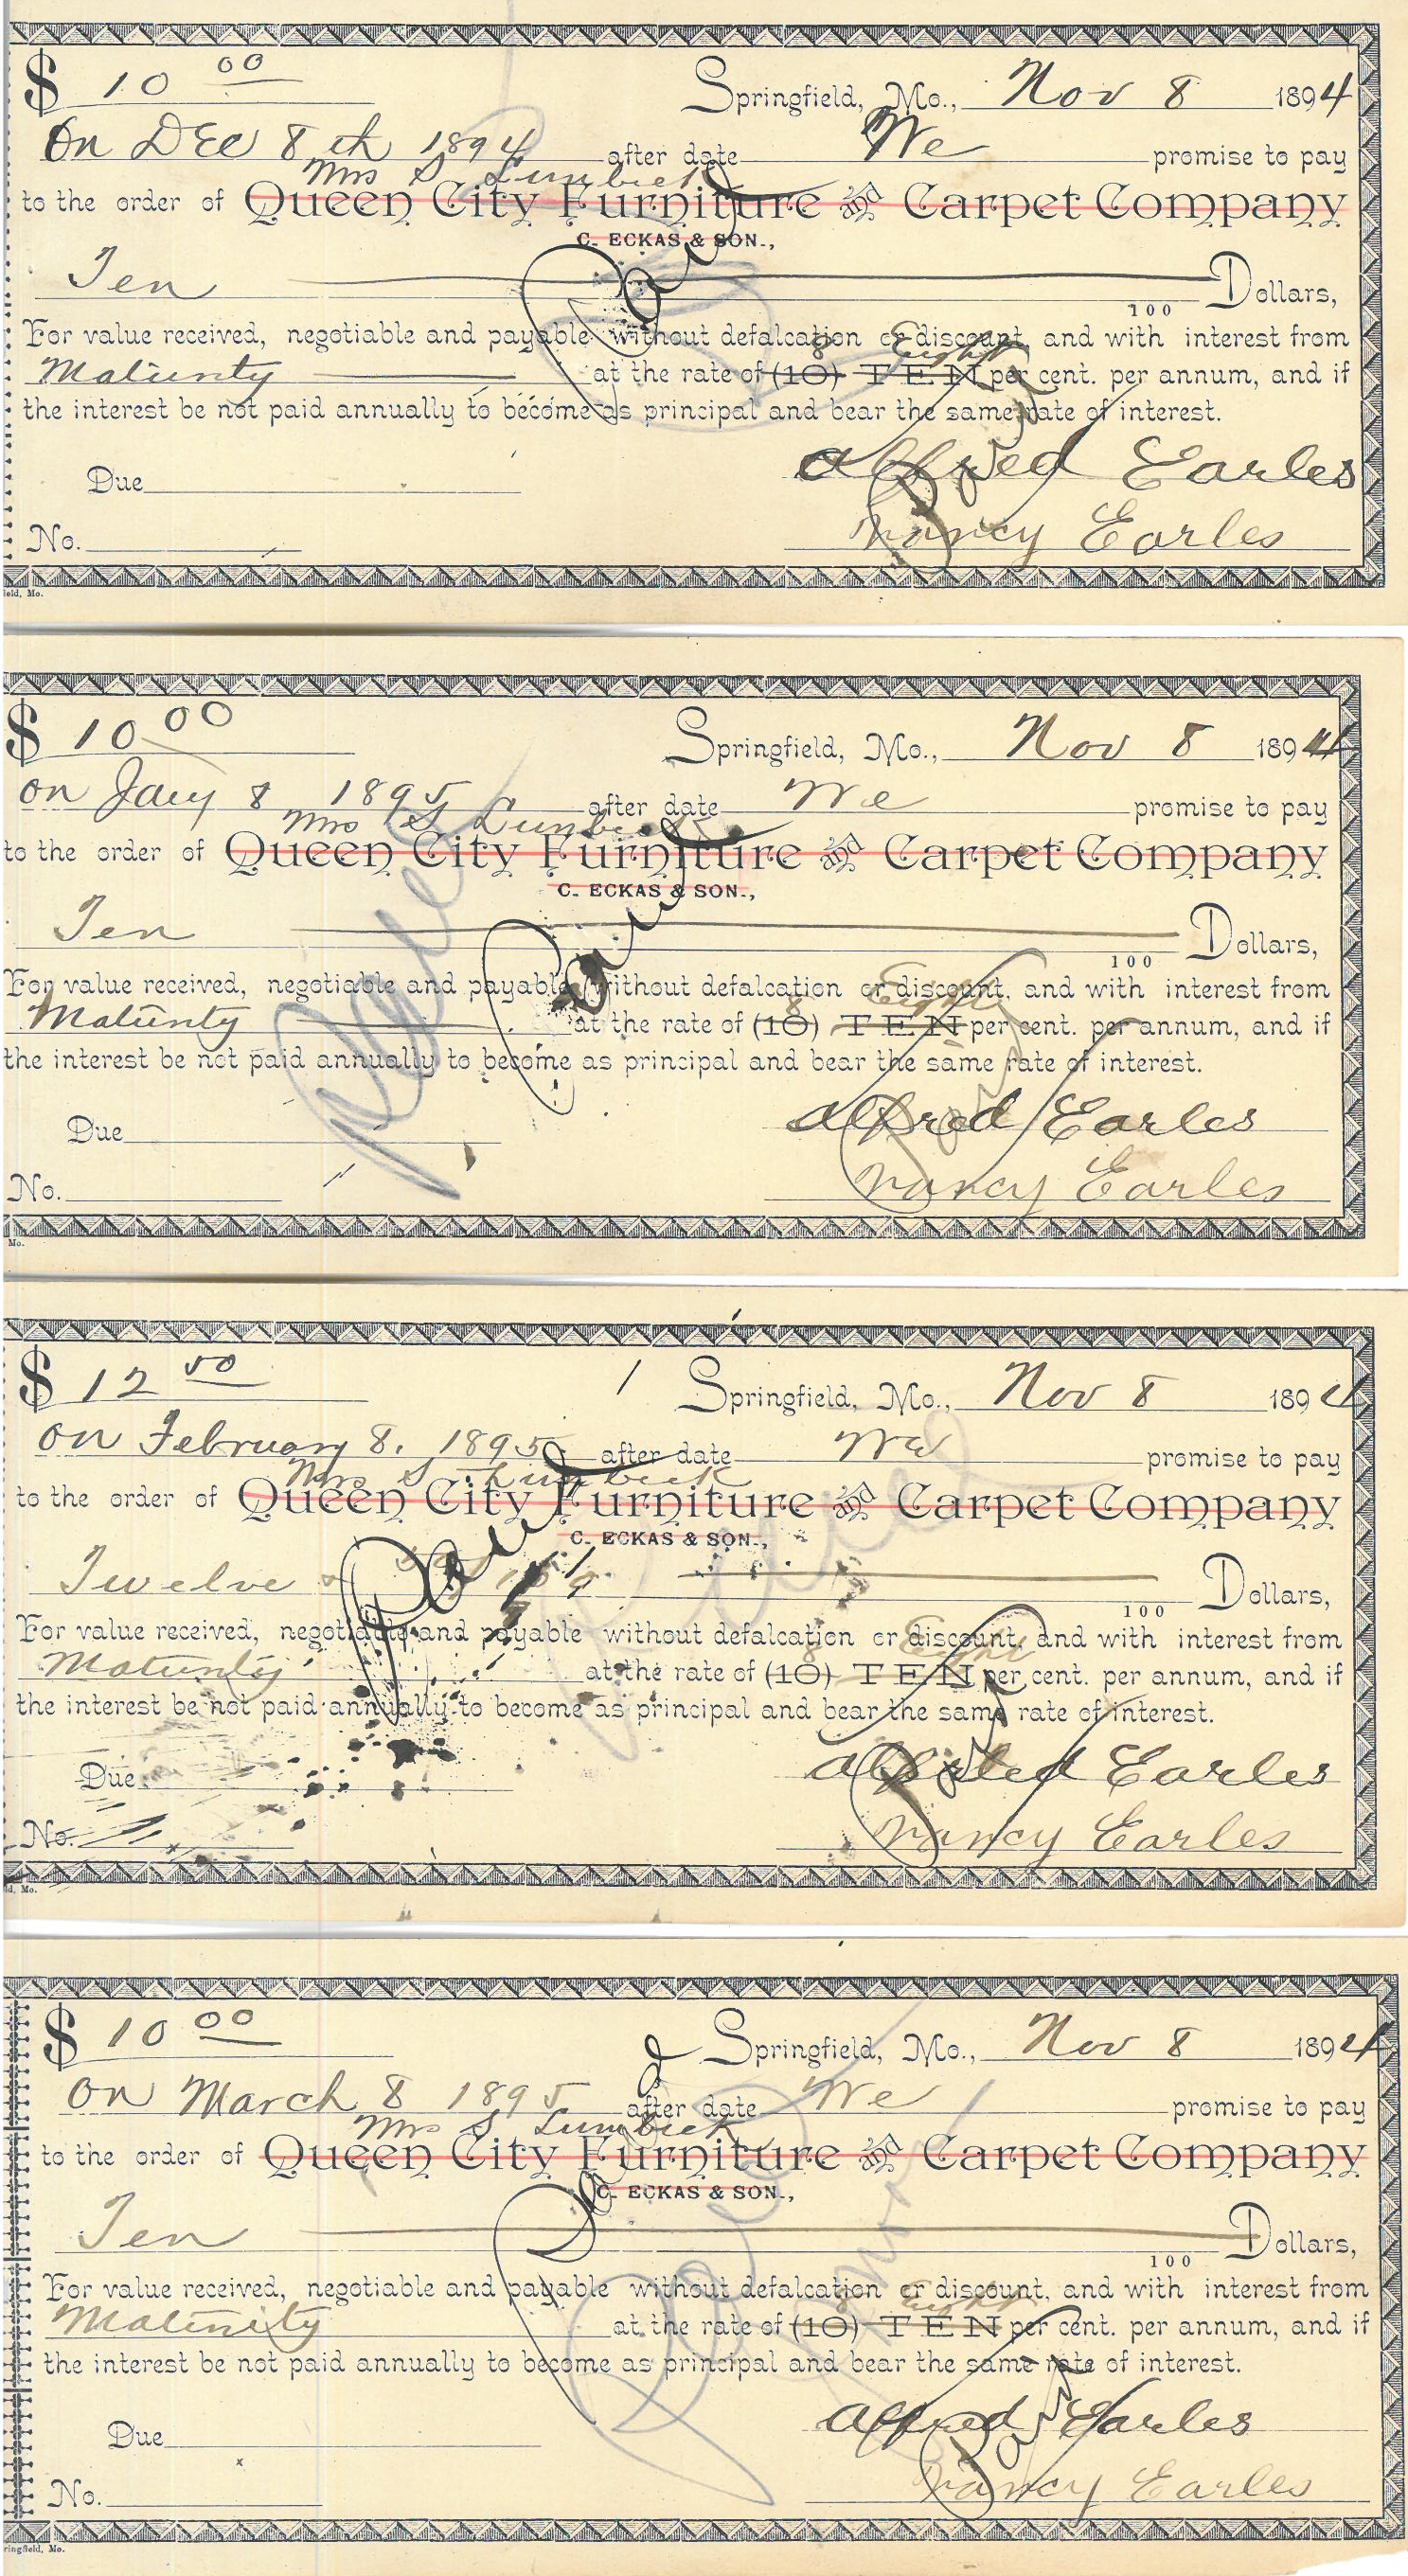 $ 10 00 Springfield, Mo., Nov 8 1894
On DEc 8th 1894 after date We promise to pay
Mrs S Lumbick
to the order of Queen City Furniture and Carpet Company
C. ECKAS & SON.,
Paid
Ten Dollars,
100
For value received, negotiable and payable without defalcation or discount, and with interest from
8 Eight
Maturity at the rate of (10) TEN per cent. per annum, and if
the interest be not paid annually to become as principal and bear the same rate of interest.
Paid
Alfred Earles
Due
Nancy Earles
No.
ield, Mo.
$ 10 00 Springfield, Mo., Nov 8 1894
on Jany 8 1895 after date We promise to pay
Mrs S Lumbick
to the order of Queen City Furniture and Carpet Company
C. ECKAS & SON.,
Paid
Ten Dollars,
100
For value received, negotiable and payable without defalcation or discount, and with interest from
8 Eight
Maturity at the rate of (10) TEN per cent. per annum, and if
the interest be not paid annually to become as principal and bear the same rate of interest.
Paid
Alfred Earles
Due
Nancy Earles
No.
Mo.
$ 12 50 Springfield, Mo., Nov 8 1894
on February 8. 1895 after date We promise to pay
Mrs S Lumbick
to the order of Queen City Furniture and Carpet Company
C. ECKAS & SON.,
Paid
Twelve Dollars,
100
For value received, negotiable and payable without defalcation or discount, and with interest from
8 Eight
Maturity at the rate of (10) TEN per cent. per annum, and if
the interest be not paid annually to become as principal and bear the same rate of interest.
Paid
Alfred Earles
Due
Nancy Earles
No.
d, Mo.
$ 10 00 Springfield, Mo., Nov 8 1894
on March 8 1895 after date We promise to pay
Mrs S Lumbick
to the order of Queen City Furniture and Carpet Company
C. ECKAS & SON.,
Paid
Ten Dollars,
100
For value received, negotiable and payable without defalcation or discount, and with interest from
8 Eight
Maturity at the rate of (10) TEN per cent. per annum, and if
the interest be not paid annually to become as principal and bear the same rate of interest.
Paid
Alfred Earles
Due
Nancy Earles
No.
ringfield, Mo.